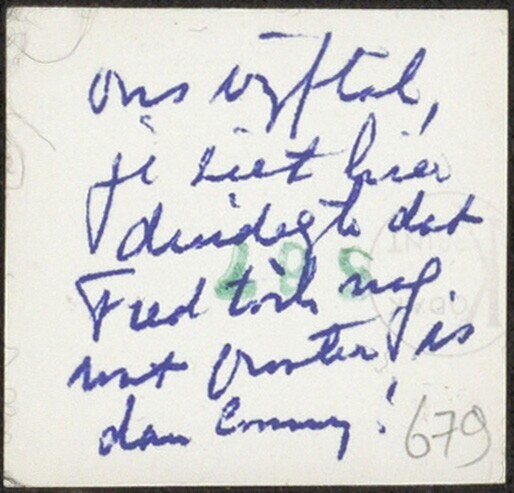 ons vijftal,
je ziet hier
duidelijk dat
Fred toch nog
wat groter is
dan Conny!
679